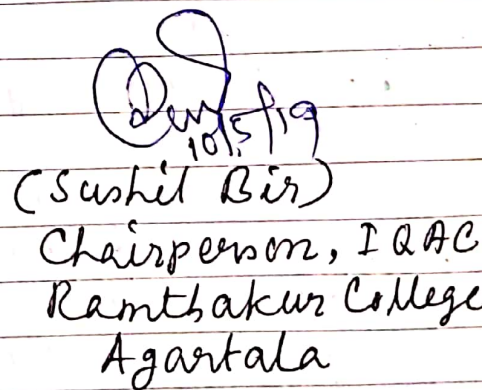 10/5/19
(Sushil Bir)
Chairperson, IQAC
Ramthakur College
Agartala